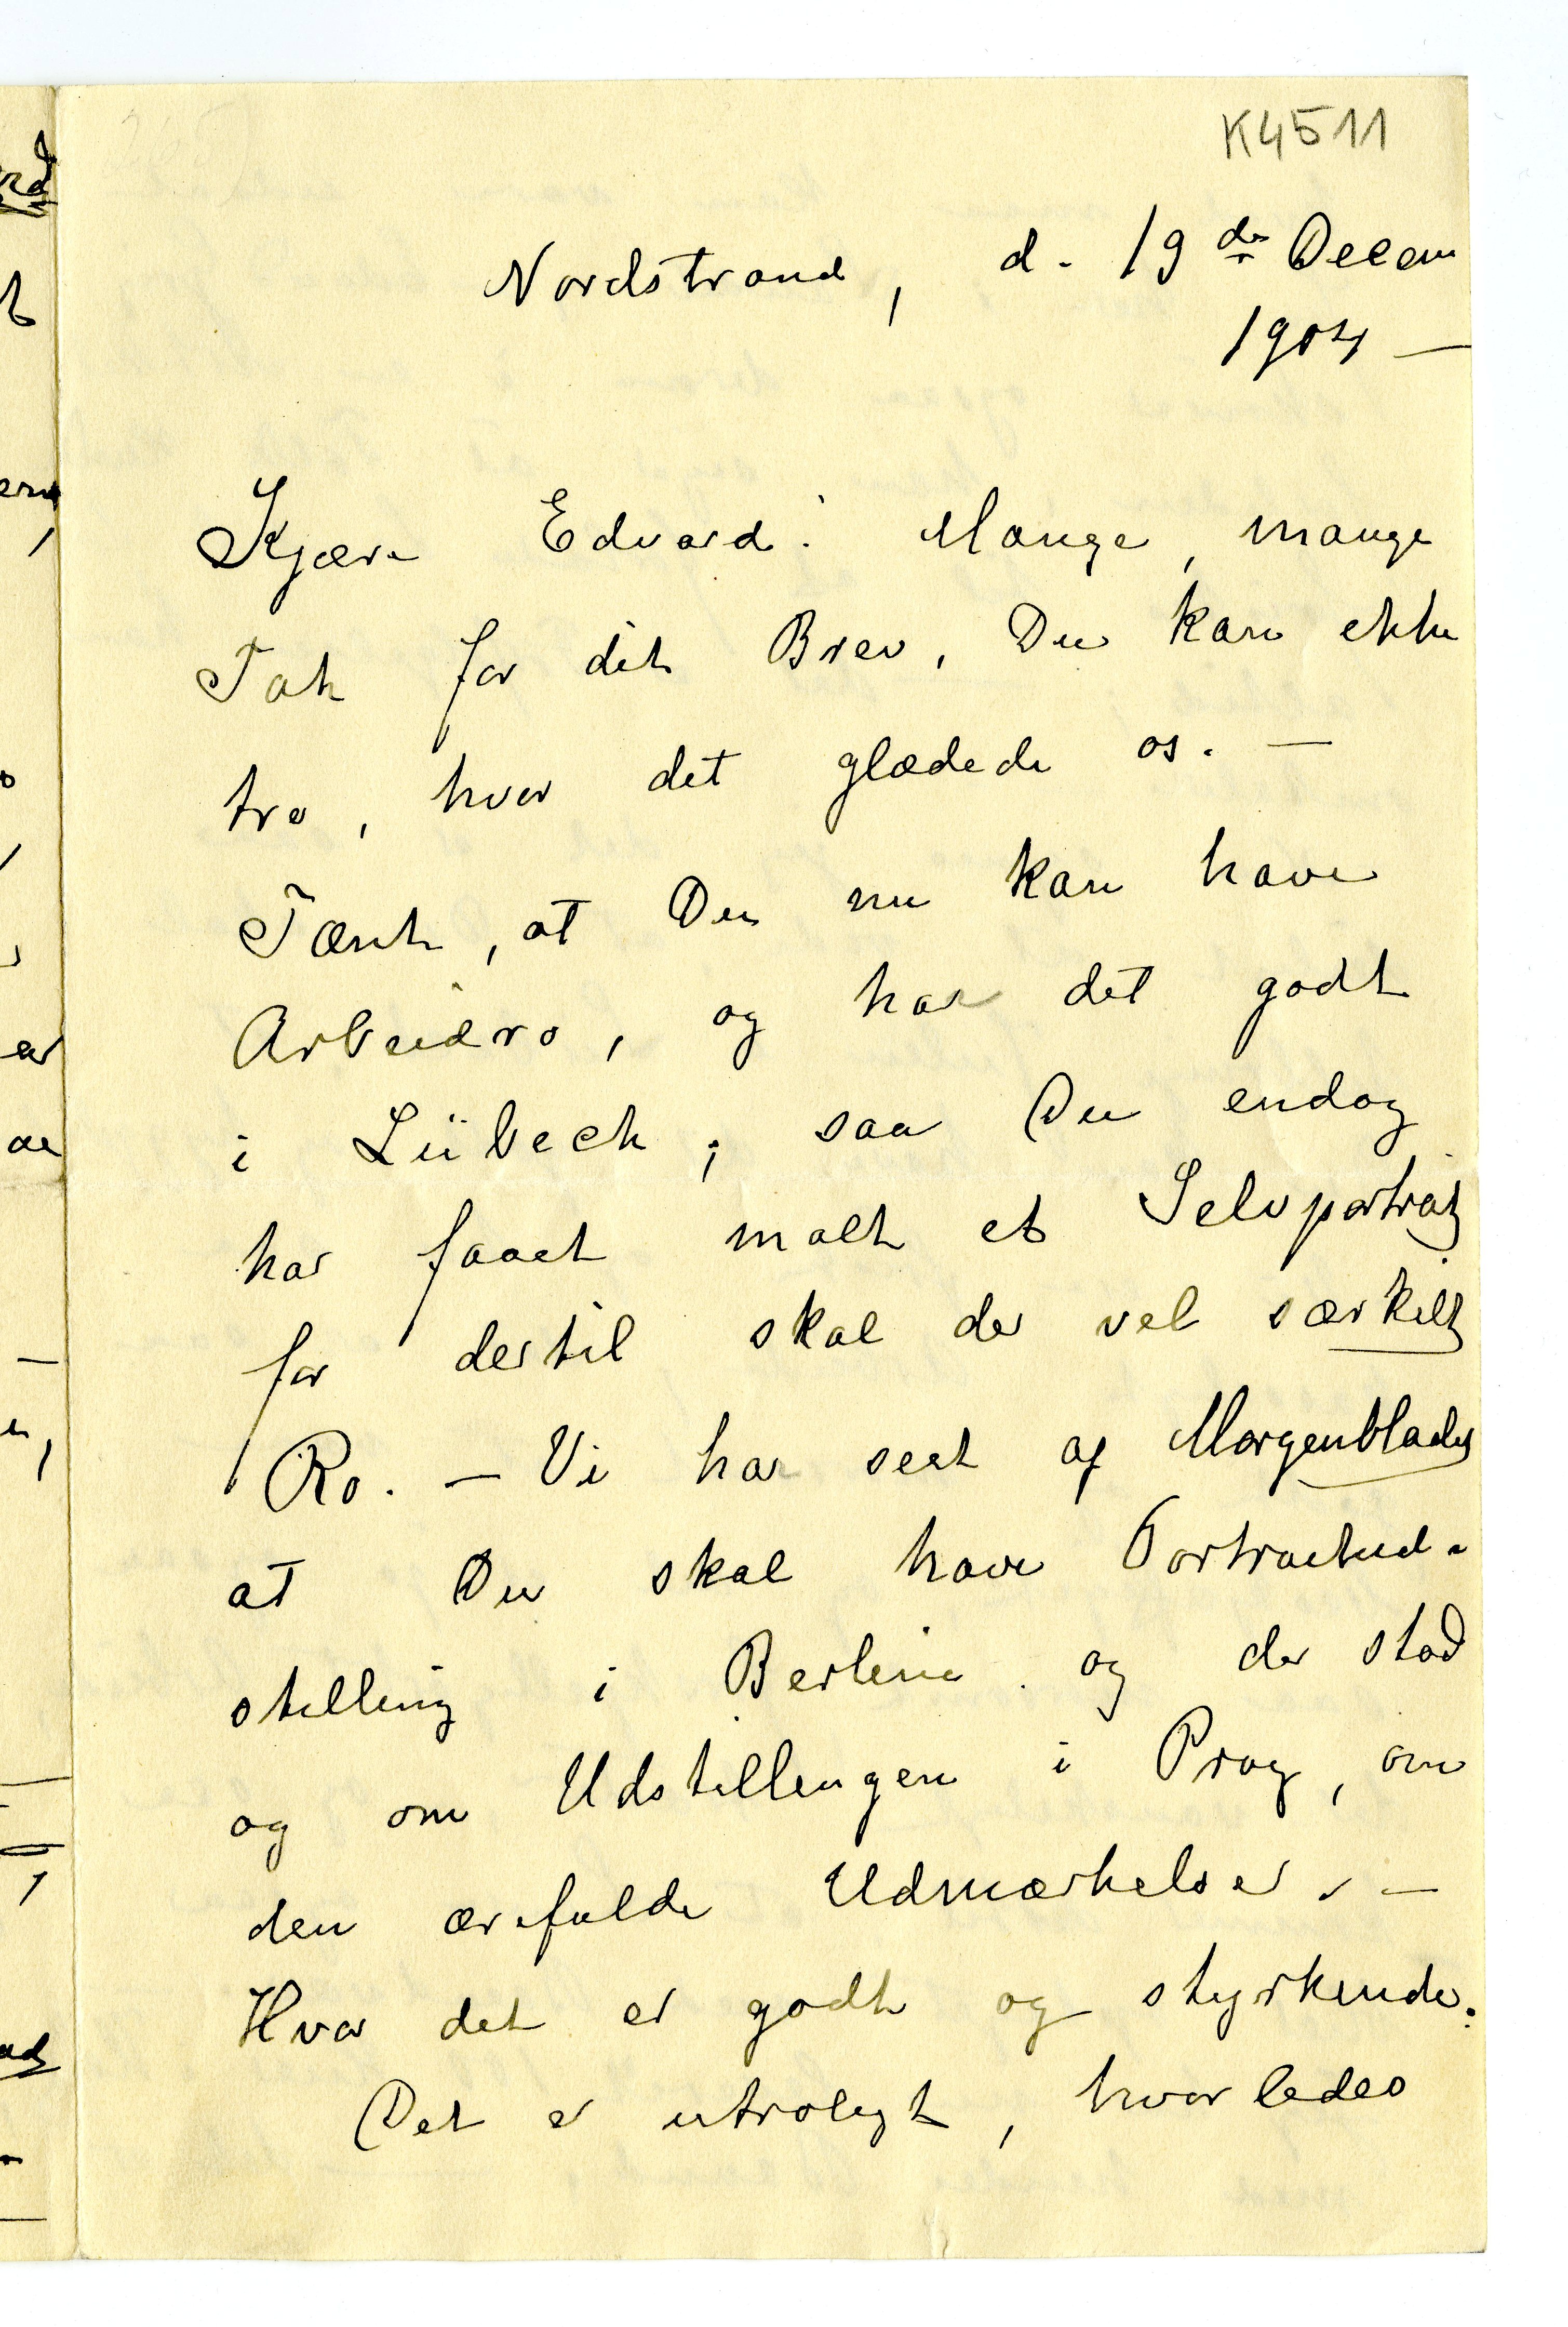 K4511
Nordstrand, d. 19de Decem
1904 —
Kjære Edvard! Mange, mange
Tak for dit Brev, Du kan ikke
tro, hvor det glædede os. —
Tænk, at Du nu kan have
Arbeidsro, og har det godt
i Lübeck; saa Du endog
har faaet malt et Selvportræt
for dertil skal der vel særkilt
Ro. — Vi har seet af Morgenbladet
at Du skal have Portraetud-
stilling i Berlin og der stod
og om Udstillingen i Prag, om
den ærefulde Udmærkelse. —
Hvor det er godt og styrkende.
Det er utroligt, hvorledes